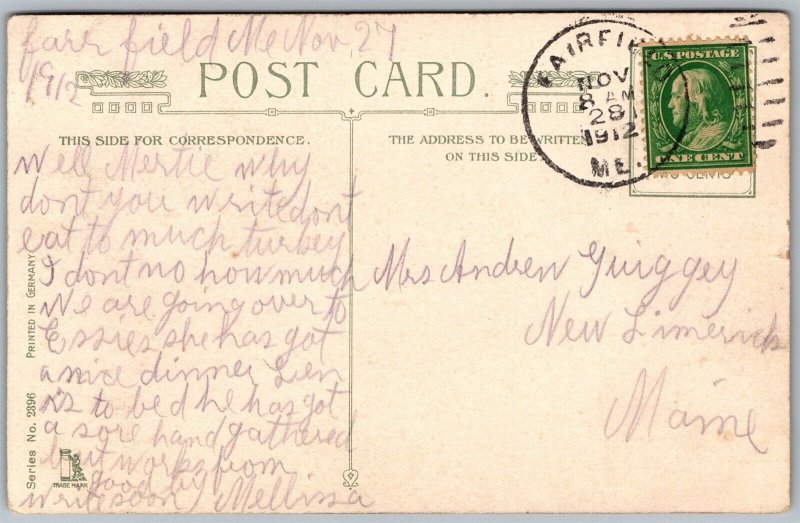 farr field Me Nov. 27
1912
POST CARD.
THIS SIDE FOR CORRESPONDENCE.
THE ADDRESS TO BE WRITTEN
ON THIS SIDE
FAIRFIELD
NOV
8 AM
28
1912
ME.
U.S. POSTAGE
ONE CENT
TWO CENTS
Well Mertie why
dont you write dont
eat to much turkey
I dont no how much
We are going over to
Essies she has got
a nice dinner Lien
is to bed he has got
a sore hand gathered
but works from
good by
write soon Mellissa
Mrs Andrew Guiggey
New Limerick
Maine
PRINTED IN GERMANY
Series No. 2396
TRADE MARK